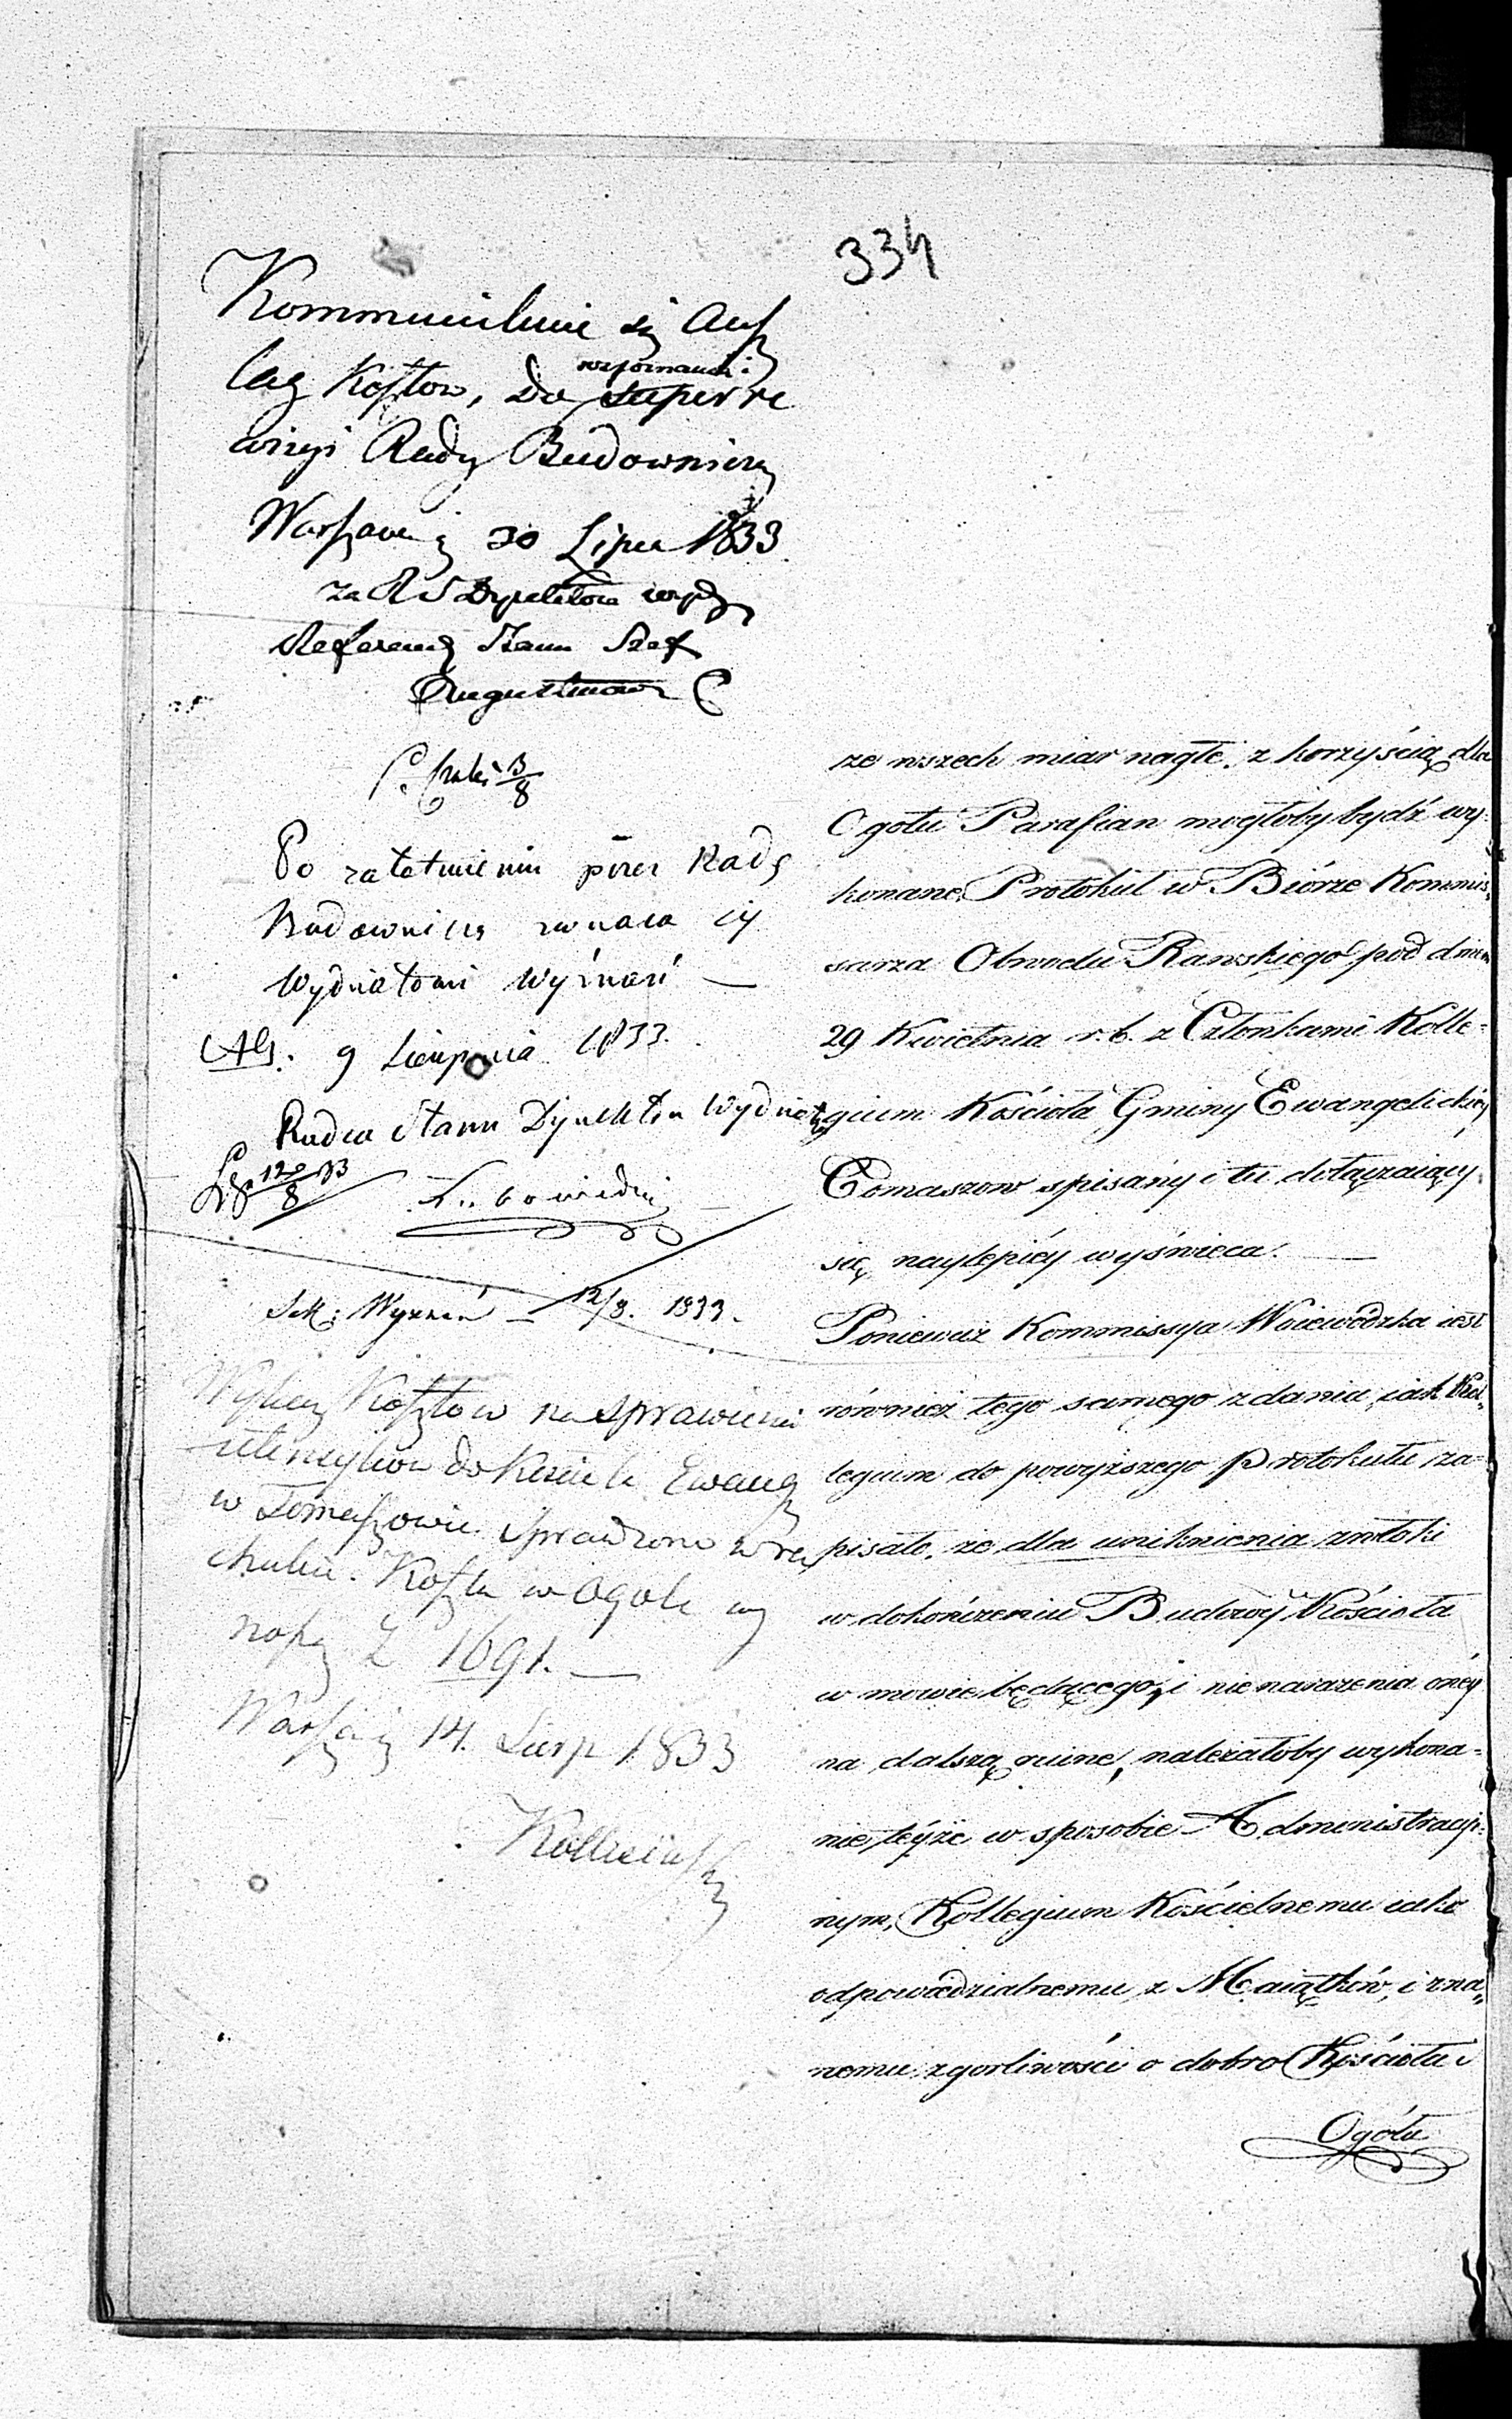 334
Kommunikuie się Ansz
lag Kosztow, do superre
wizyi Rady Budowniczy
Warszawa 30 Lipca 1833
Referend Stanu Szef
3/8
Po załatwieniu przez Radę
Budowniczą zwraca się
Wydziałowi Wyznań —
9 Sierpnia 1833.
Radca Stanu Dyrektor Wydziału
Sek: Wyznań — 12/8. 1833.
Wykaz Kosztow na sprawienie
utensyliow do Kościoła Ewang
w Tomaszowie sprawdzono w ra
chubie. Koszta w Ogole wy
noszą Z 1691. —
Warsz 14. Sierp 1833
ze wszech miar nagłe, z korzyścią dla
Ogołu Parafian mogłoby bydź wy-
konane, Protokuł w Biórze Kommis-
sarza Obwodu Rawskiego pod dniem
29 Kwietnia r. b. z Członkami Kolle-
gium Kościoła Gminy Ewangelickiey
Tomaszow spisany i tu dołączaiący
się naylepiéy wyświeca. —
Ponieważ Kommissya Woiewódzka iest
również tego samego zdania, iak Kol-
legium do powyższego Protokułu za-
pisało, że dla uniknienia zwłoki
w dokończeniu Budowy Kościoła
w mowie będącego, i nie narażenia onéy
na dalszą ruinę, należałoby wykona-
nie téyże w sposobie Administracyi-
nym, Kollegium Kościelnemu iako
odpowiedzialnemu z Maiątków, i zna-
nemu z gorliwości o dobro Kościoła i
Ogółu